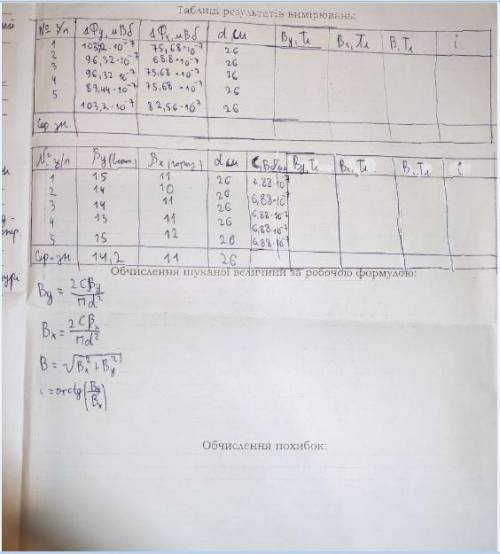 Таблиці результатів вимірювань:
№ з/п ΔФу, мВб ΔФх, мВб d см Ву, Тл Вх, Тл В, Тл i
1 103,2·10⁻⁷ 75,68·10⁻⁷ 26
2 96,32·10⁻⁷ 68.8·10⁻⁷ 26
3 96,32·10⁻⁷ 75,68·10⁻⁷ 26
4 89,44·10⁻⁷ 75,68·10⁻⁷ 26
5 103,2·10⁻⁷ 82,56·10⁻⁷ 26
Сер. зн.
№ з/п βу(верт) βх(гориз) d см Ву, Тл Вх, Тл В, Тл i
1 15 11 26 6,88·10⁻⁷
2 14 10 26 6,88·10⁻⁷
3 14 11 26 6,88·10⁻⁷
4 13 11 26 6,88·10⁻⁷
5 15 12 26 6,88·10⁻⁷
Сер. зн. 14,2 11 26
Обчислення шуканої величини за робочою формулою:
Ву = 2Сβу / πd²
Вх = 2Сβх / πd²
В = √(Вх² + Ву²)
i = arctg(Ву / Вх)
Обчислення похибок: